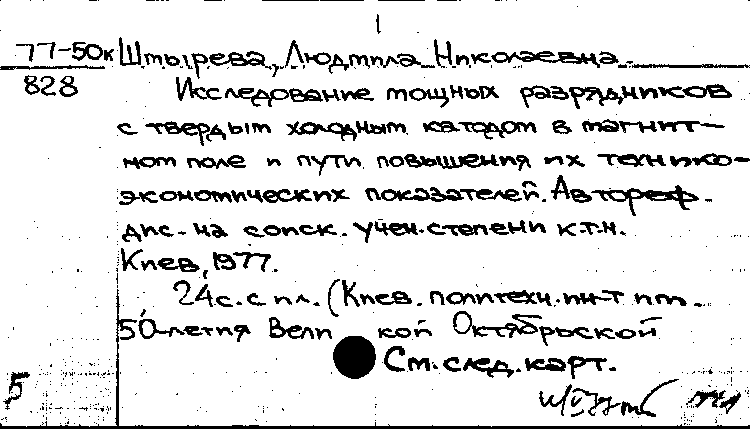 1
77-50к Штырева, Людмила Николаевна.
828 Исследование мощных разрядников
с твердым холодным катодом в магнит-
ном поле и пути повышения их технико-
экономических показателей. Автореф.
дис. на соиск. учен. степени к.т.н.
Киев, 1977.
24с. с ил. (Киев. политехн. ин-т им.
50-летия Вели кой Октябрьской
См. след. карт.
5